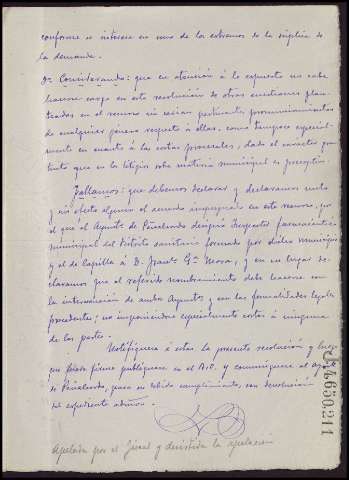 conforme se interesa en uno de los extremos de la súplica de
la demanda.
Dº Considerando: que en atención á lo expuesto no cabe
hacerse cargo en esta resolución de otras cuestiones plan-
teadas en el recurso ni serían pertinentes pronunciamientos
de cualquier género respecto á ellas, como tampoco especial-
mente en cuanto á las costas procesales, dado el carácter gra-
tuito que en los litigios sobre materia municipal es preceptivo.
Fallamos: que debemos declarar y declaramos nulo
y sin efecto alguno el acuerdo impugnado en este recurso, por
el que el Ayuntº de Peñalsordo designó Inspector farmacéutico
municipal del distrito sanitario formado por dicho municipio
y el de Capilla á D. Juan Gª, y en su lugar de-
claramos que el referido nombramiento debe hacerse con
la intervención de ambos Ayuntºs y con las formalidades legales
procedentes; no imponiéndose especialmente costas á ninguna
de las partes.
Notifíquese á éstas la presente resolución y luego
que quede firme publíquese en el B.O. y comuníquese al Aytº
de Peñalsordo, para su debido cumplimiento, con devolución
del expediente admvo.
Apelada por el Fiscal y desistida la apelación
14650211